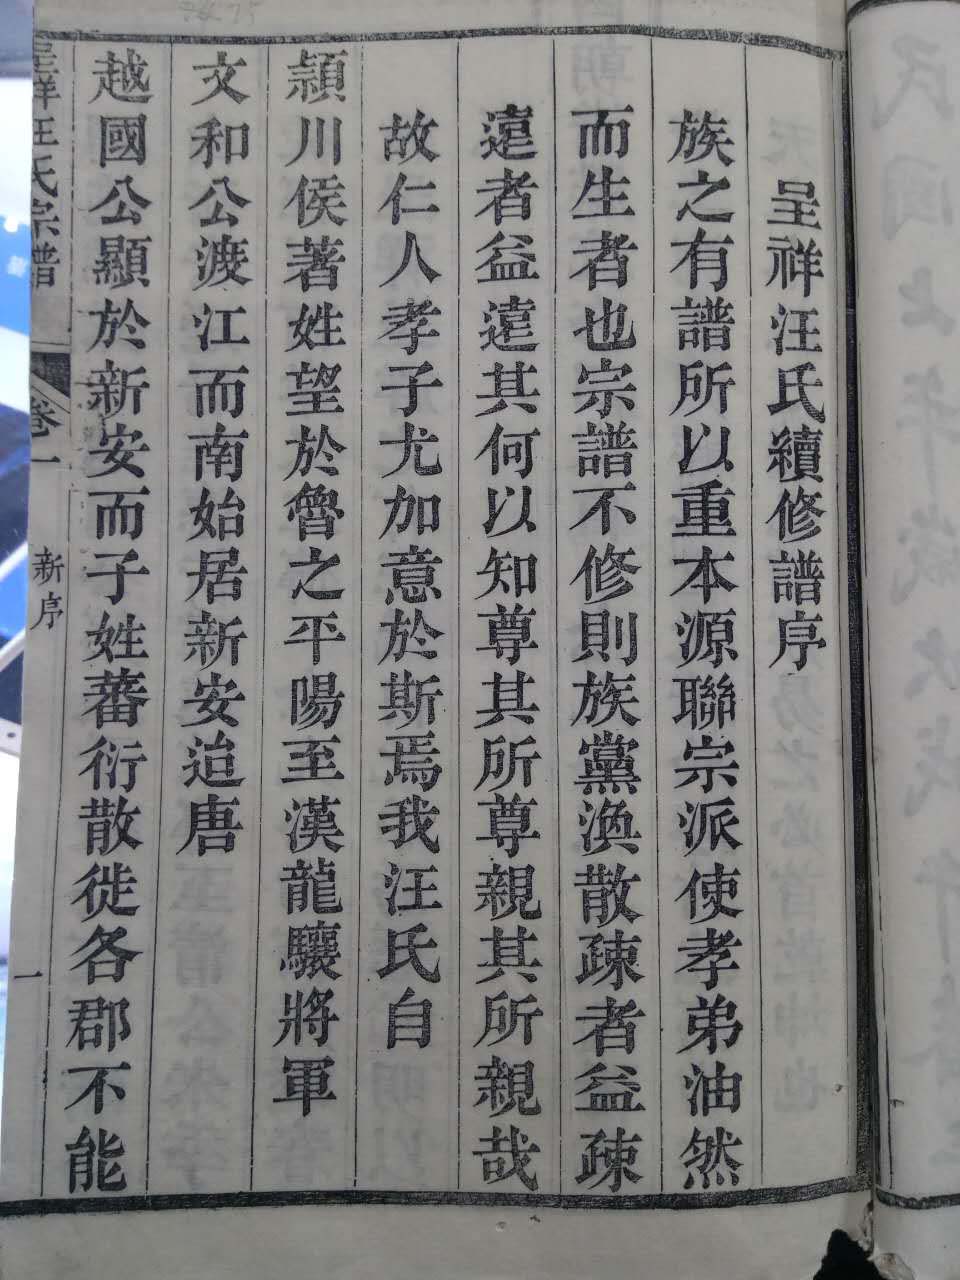 呈祥汪氏續修譜序
族之有譜所以重本源聯宗派使孝弟油然
而生者也宗譜不修則族黨渙散疎者益疎
遠者益遠其何以知尊其所尊親其所親哉
故仁人孝子尤加意於斯焉我汪氏自
潁川侯著姓望於魯之平陽至漢龍驤將軍
文和公渡江而南始居新安迨唐
越國公顯於新安而子姓蕃衍散徙各郡不能
呈祥汪氏宗譜
卷一
新序
一